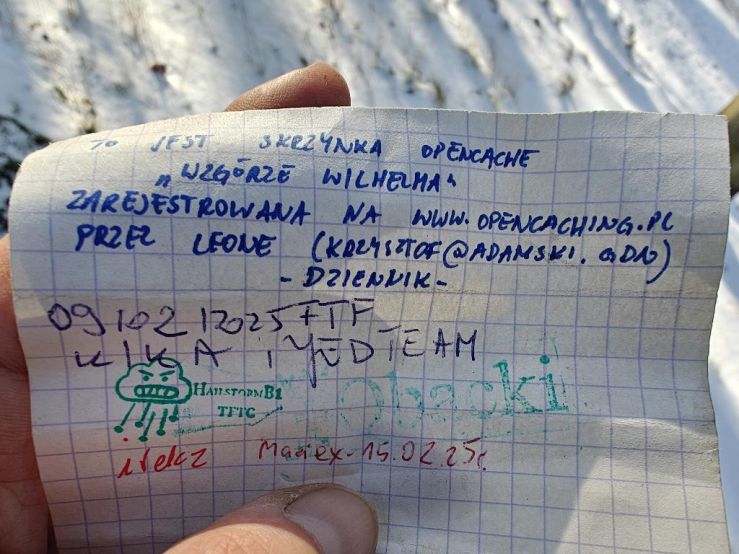 TO JEST SKRZYNKA OPENCACHE
„WZGÓRZE WILHELMA"
ZAREJESTROWANA NA WWW.OPENCACHING.PL
PRZEZ LEONE (KRZYSZTOF@ADAMSKI.GDN)
- DZIENNIK -
09/02/2025 FTF
KIKA i YEDTEAM
HAILSTORMB1
TFTC
obacki
Maciex - 15.02.25r.